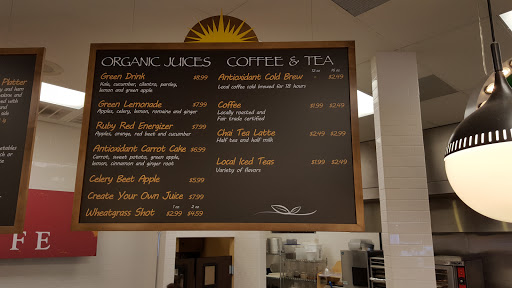 Platter
ORGANIC JUICES
Green Drink $8.99
Kale, cucumber, cilantro, parsley,
lemon and green apple
Green Lemonade $7.99
Apples, celery, lemon, romaine and ginger
Ruby Red Energizer $7.99
Apples, orange, red beet and cucumber
Antioxidant Carrot Cake $6.99
Carrot, sweet potato, green apple,
lemon, cinnamon and ginger root
Celery Beet Apple $5.99
Create Your Own Juice $7.99
1 oz 2 oz
Wheatgrass Shot $2.99 $4.59
COFFEE & TEA
12 oz 16 oz
Antioxidant Cold Brew - $2.49
Local coffee cold brewed for 18 hours
Coffee $1.99 $2.49
Locally roasted and
Fair trade certified
Chai Tea Latte $2.49 $2.99
Half tea and half milk
Local Iced Teas $1.99 $2.49
Variety of flavors
FE